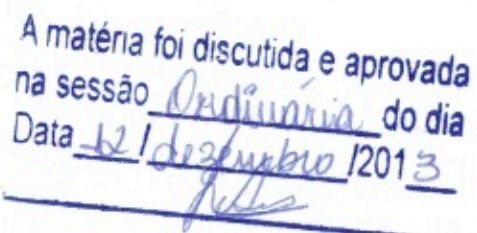 A matéria foi discutida e aprovada
na sessão Ordinária do dia
Data 12 / dezembro /2013